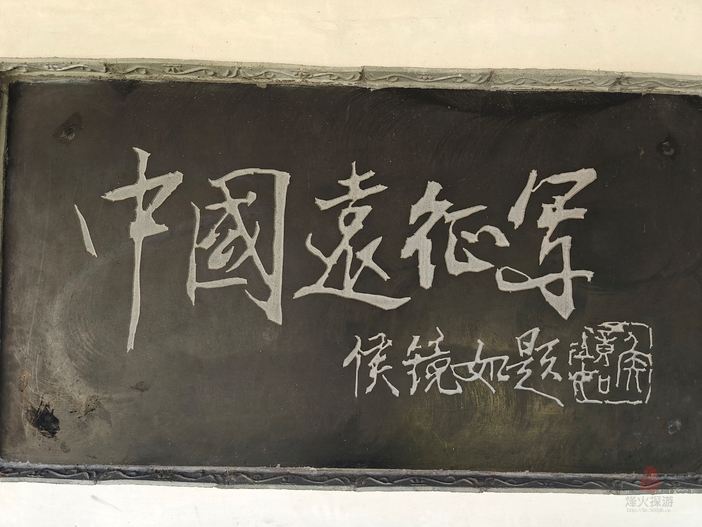 中國遠征军
侯镜如题
烽火探游